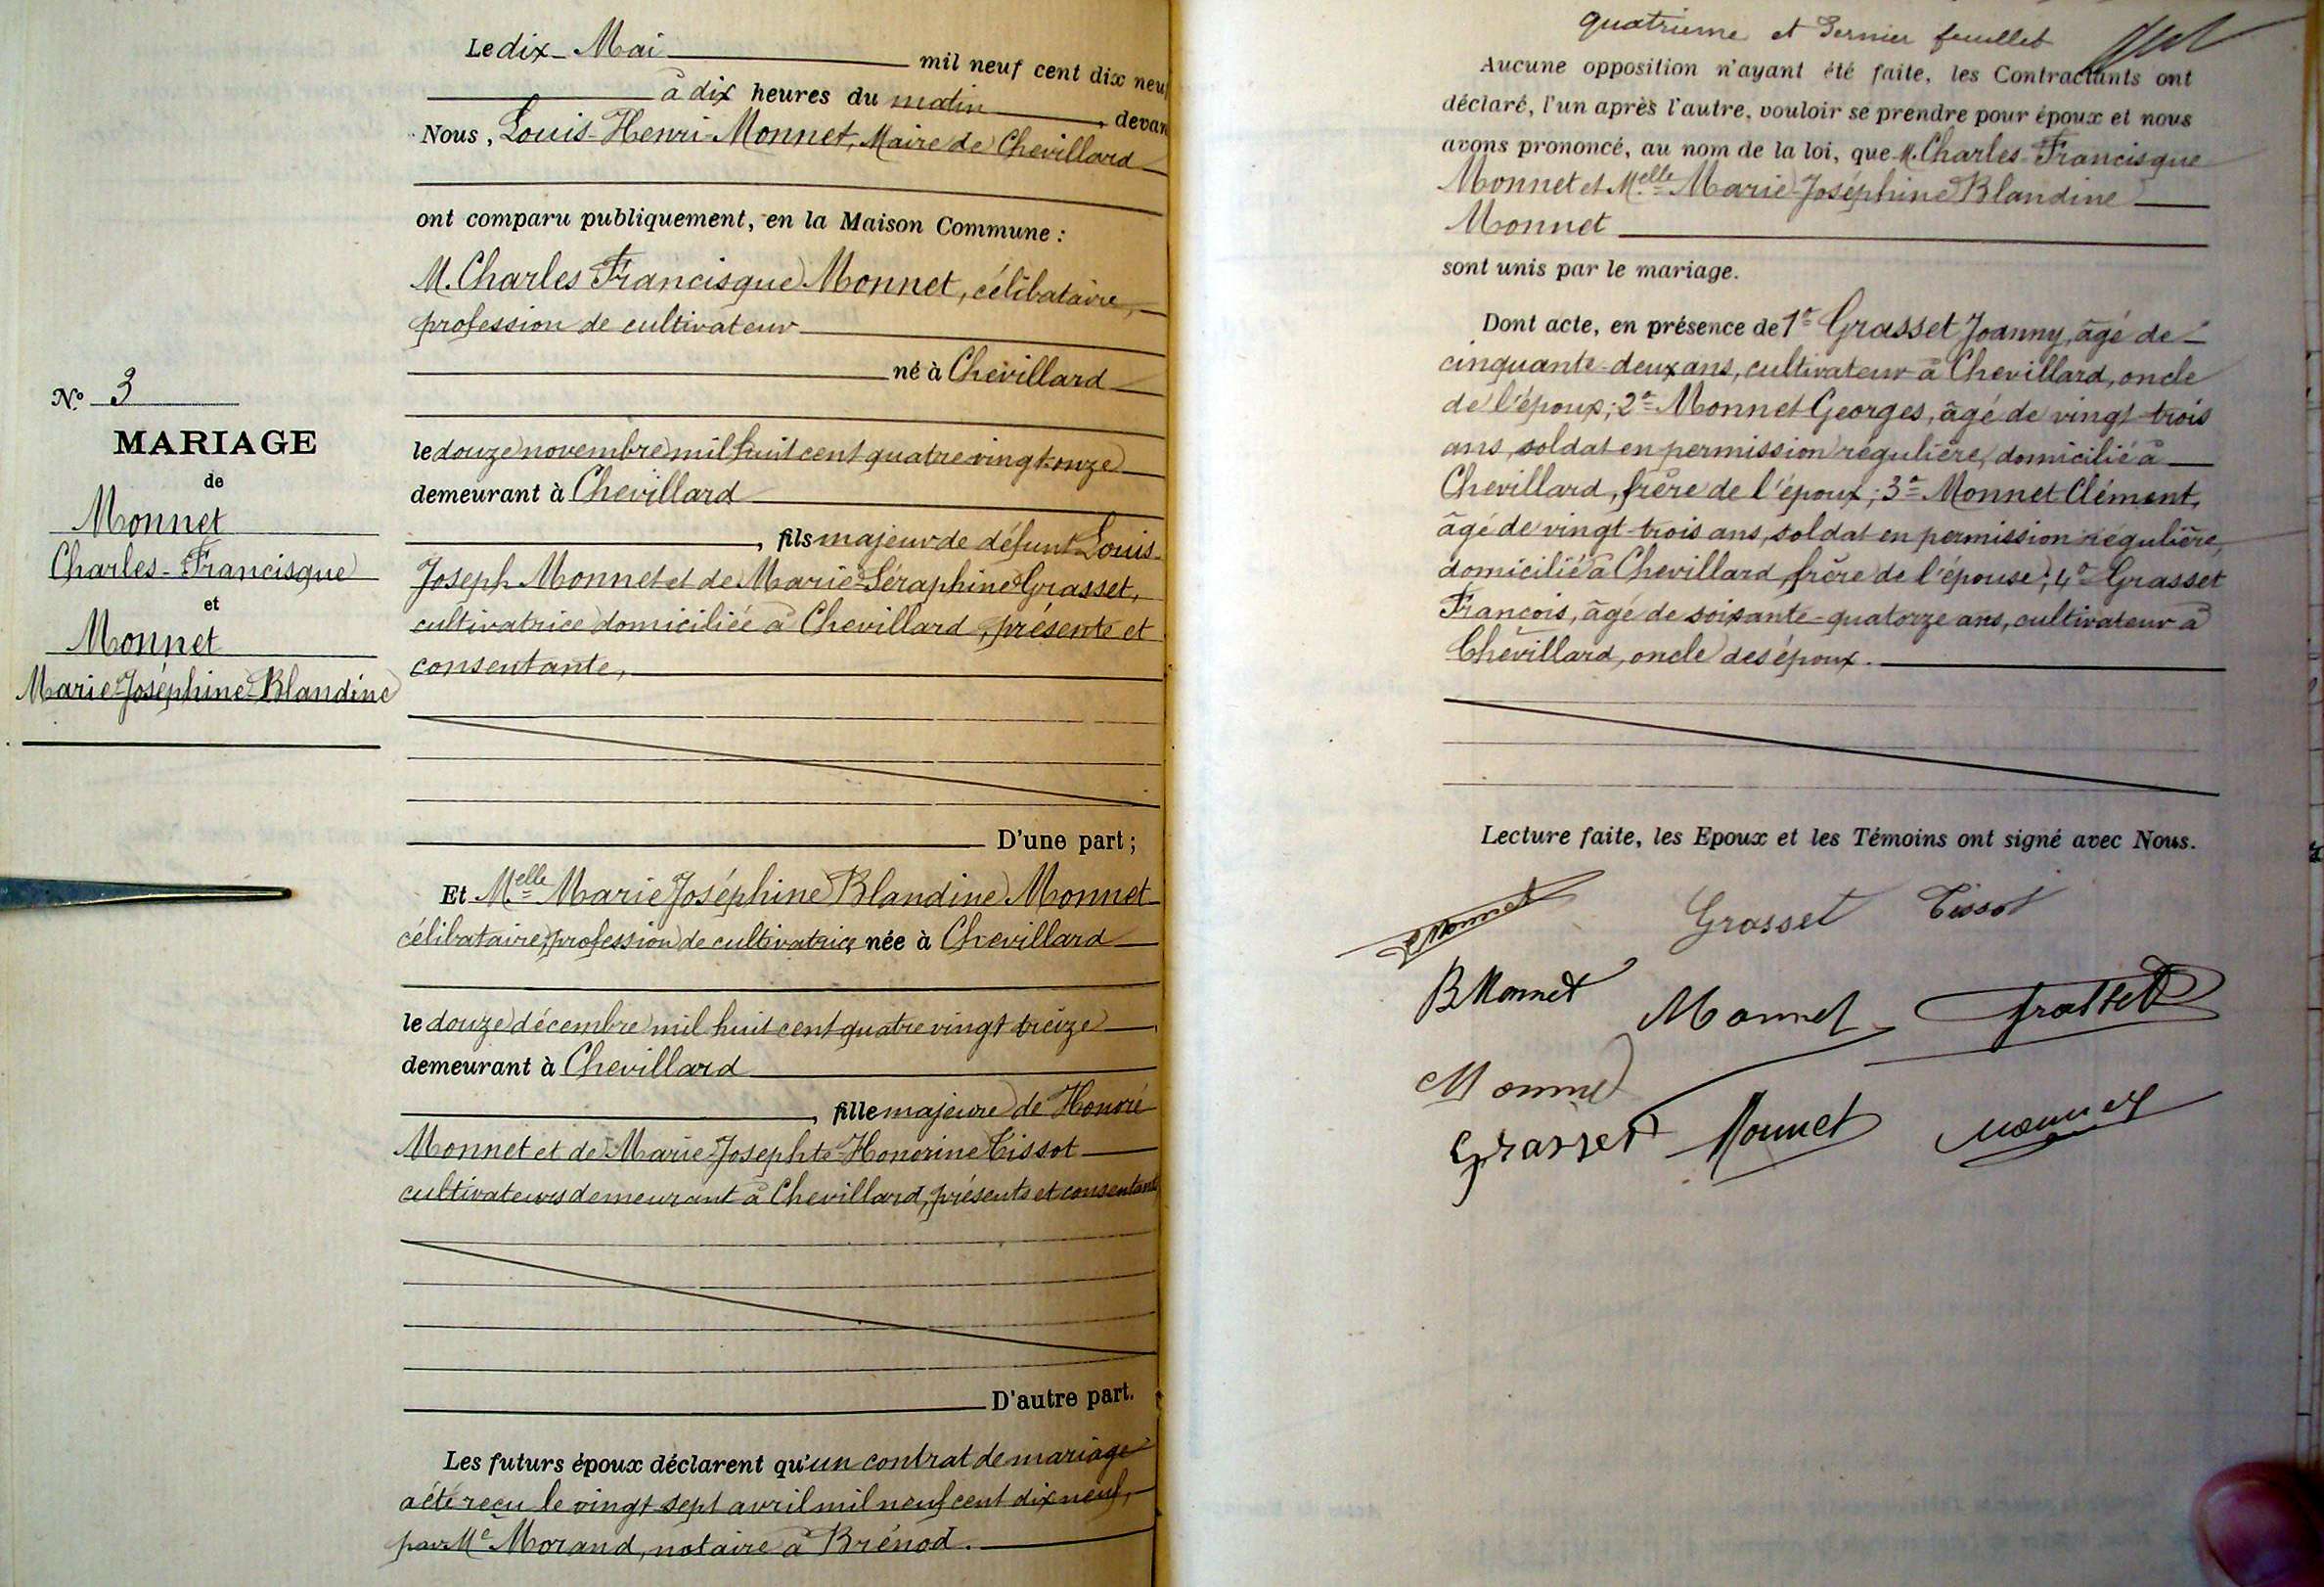 Nº 3
MARIAGE
de
Monnet
Charles-Francisque
et
Monnet
Marie-Joséphine-Blandine
Le dix Mai mil neuf cent dix neuf
à dix heures du matin, devan
Nous, Louis-Henri-Monnet, Maire de Chevillard
ont comparu publiquement, en la Maison Commune :
M. Charles Francisque Monnet, célibataire,
profession de cultivateur
né à Chevillard
le douze novembre mil huit cent quatre vingt onze
demeurant à Chevillard
, fils majeur de défunt Louis-
Joseph Monnet et de Marie-Séraphine Grasset,
cultivatrice domiciliée à Chevillard, présente et
consentante,
D'une part ;
Et Melle Marie Joséphine Blandine Monnet
célibataire, profession de cultivatrice née à Chevillard
le douze décembre mil huit cent quatre vingt treize
demeurant à Chevillard
, fille majeure de Honoré
Monnet et de Marie-Josephte-Honorine Tissot
cultivateurs demeurant à Chevillard, présents et consentant
D'autre part.
Les futurs époux déclarent qu'un contrat de mariage
a été reçu le vingt sept avril mil neuf cent dix neuf,
par Me Morand, notaire à Brénod.
quatrième et dernier feuillet
Aucune opposition n'ayant été faite, les Contractants ont
déclaré, l'un après l'autre, vouloir se prendre pour époux et nous
avons prononcé, au nom de la loi, que M. Charles-Francisque
Monnet et Melle Marie-Joséphine Blandine
Monnet
sont unis par le mariage.
Dont acte, en présence de 1º Grasset Joanny, âgé de
cinquante-deux ans, cultivateur à Chevillard, oncle
de l'époux; 2º Monnet Georges, âgé de vingt-trois
ans, soldat en permission régulière, domicilié à
Chevillard, frère de l'époux; 3º Monnet Clément,
âgé de vingt-trois ans, soldat en permission régulière,
domicilié à Chevillard, frère de l'épouse; 4º Grasset
François, âgé de soixante-quatorze ans, cultivateur à
Chevillard, oncle des époux.
Lecture faite, les Epoux et les Témoins ont signé avec Nous.
Monnet Grasset Tissot
B Monnet Monnet Grasset
Monnet
Grasset Monnet Monnet